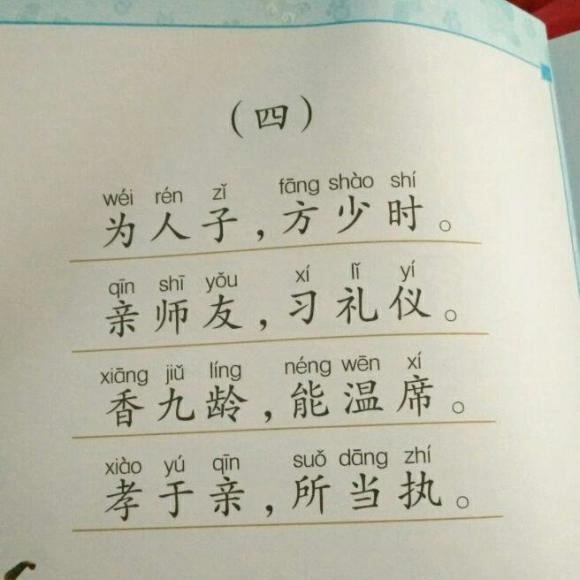 （四）
wéi rén zǐ fāng shào shí
为人子，方少时。
qīn shī yǒu xí lǐ yí
亲师友，习礼仪。
xiāng jiǔ líng néng wēn xí
香九龄，能温席。
xiào yú qīn suǒ dāng zhí
孝于亲，所当执。